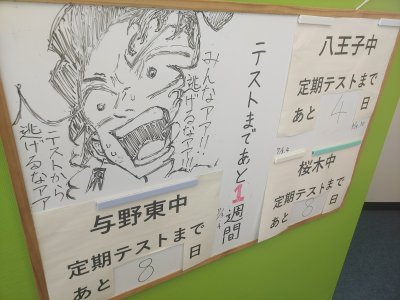 みんなァァ!!
逃げるなァァ!!!
テストから
逃げるなァァ
テストまであと1週間
八王子中
定期テストまで
あと 4 日
桜木中
定期テストまで
あと 8 日
与野東中
定期テストまで
あと 8 日